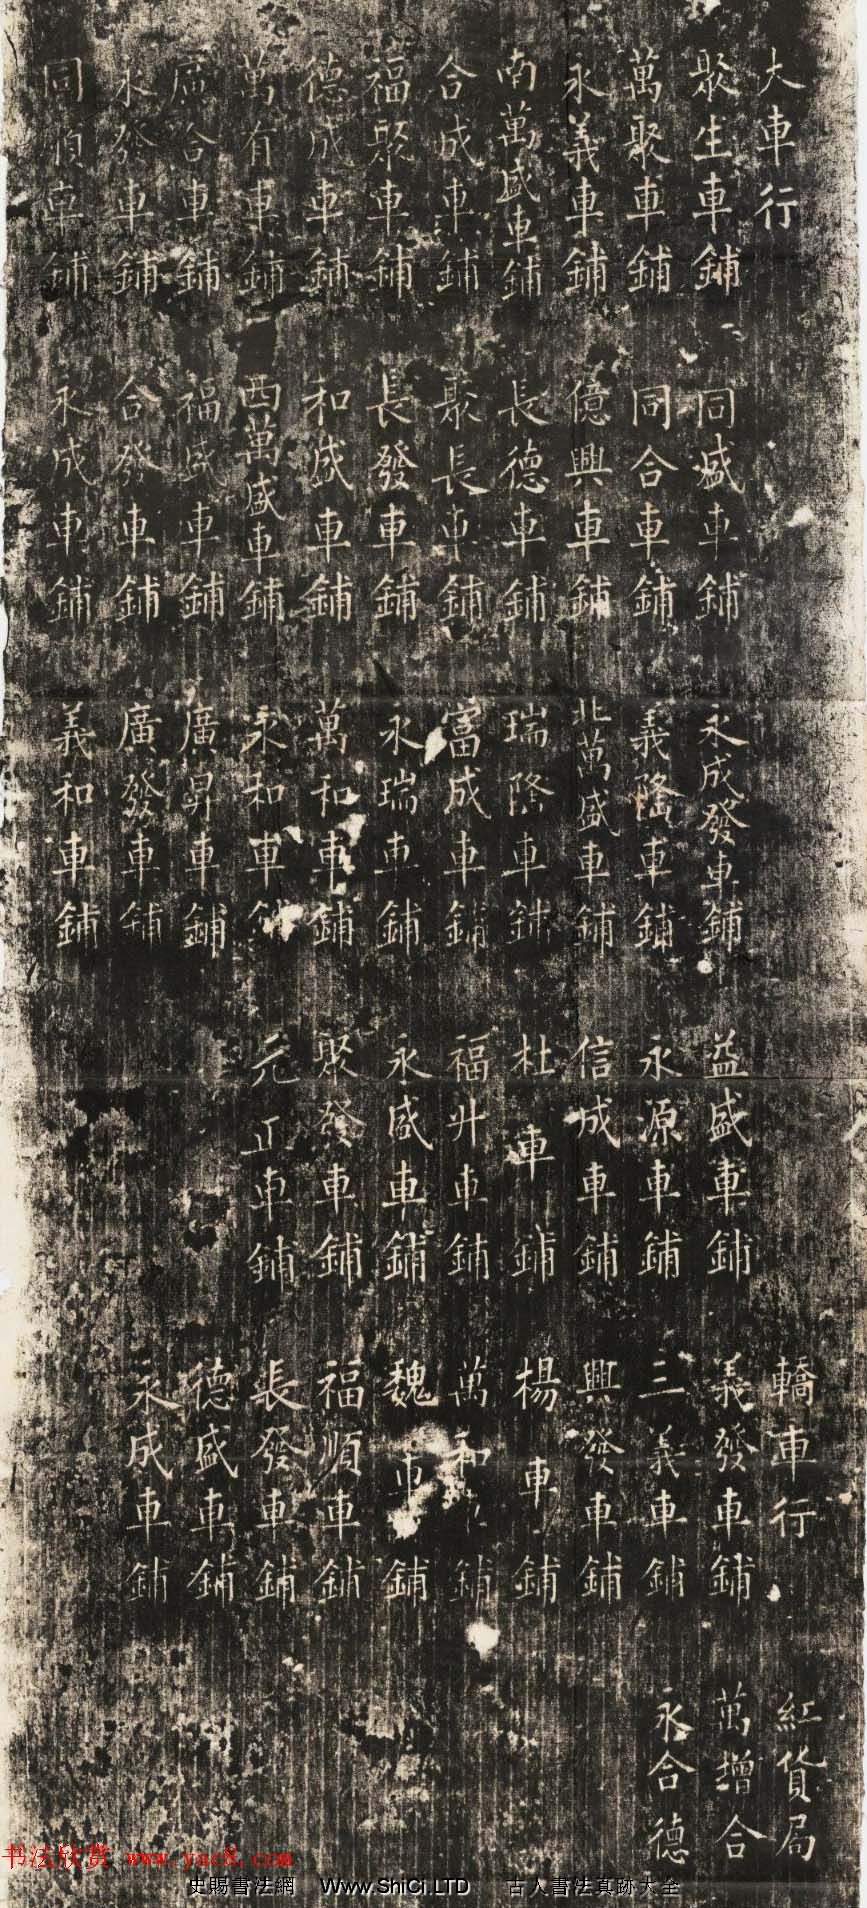 大車行
聚生車鋪
萬聚車鋪
永義車鋪
南萬盛車鋪
合成車鋪
福聚車鋪
德成車鋪
萬有車鋪
廣合車鋪
永發車鋪
同順車鋪
同盛車鋪
同合車鋪
億興車鋪
長德車鋪
聚長車鋪
長發車鋪
和盛車鋪
西萬盛車鋪
福盛車鋪
合發車鋪
永成車鋪
永成發車鋪
義隆車鋪
北萬盛車鋪
瑞隆車鋪
富成車鋪
永瑞車鋪
萬和車鋪
永和車鋪
廣昇車鋪
廣發車鋪
義和車鋪
益盛車鋪
永源車鋪
信成車鋪
杜車鋪
福升車鋪
永盛車鋪
聚發車鋪
元正車鋪
轎車行
義發車鋪
三義車鋪
興發車鋪
楊車鋪
萬和車鋪
魏車鋪
福順車鋪
長發車鋪
德盛車鋪
永成車鋪
紅貨局
萬增合
永合德
书法欣赏 www.yac8.com
史賜書法網 Www.ShiCi.LTD 古人書法真跡大全